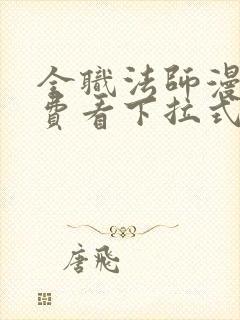 全職法師漫
費看下拉式
唐飛